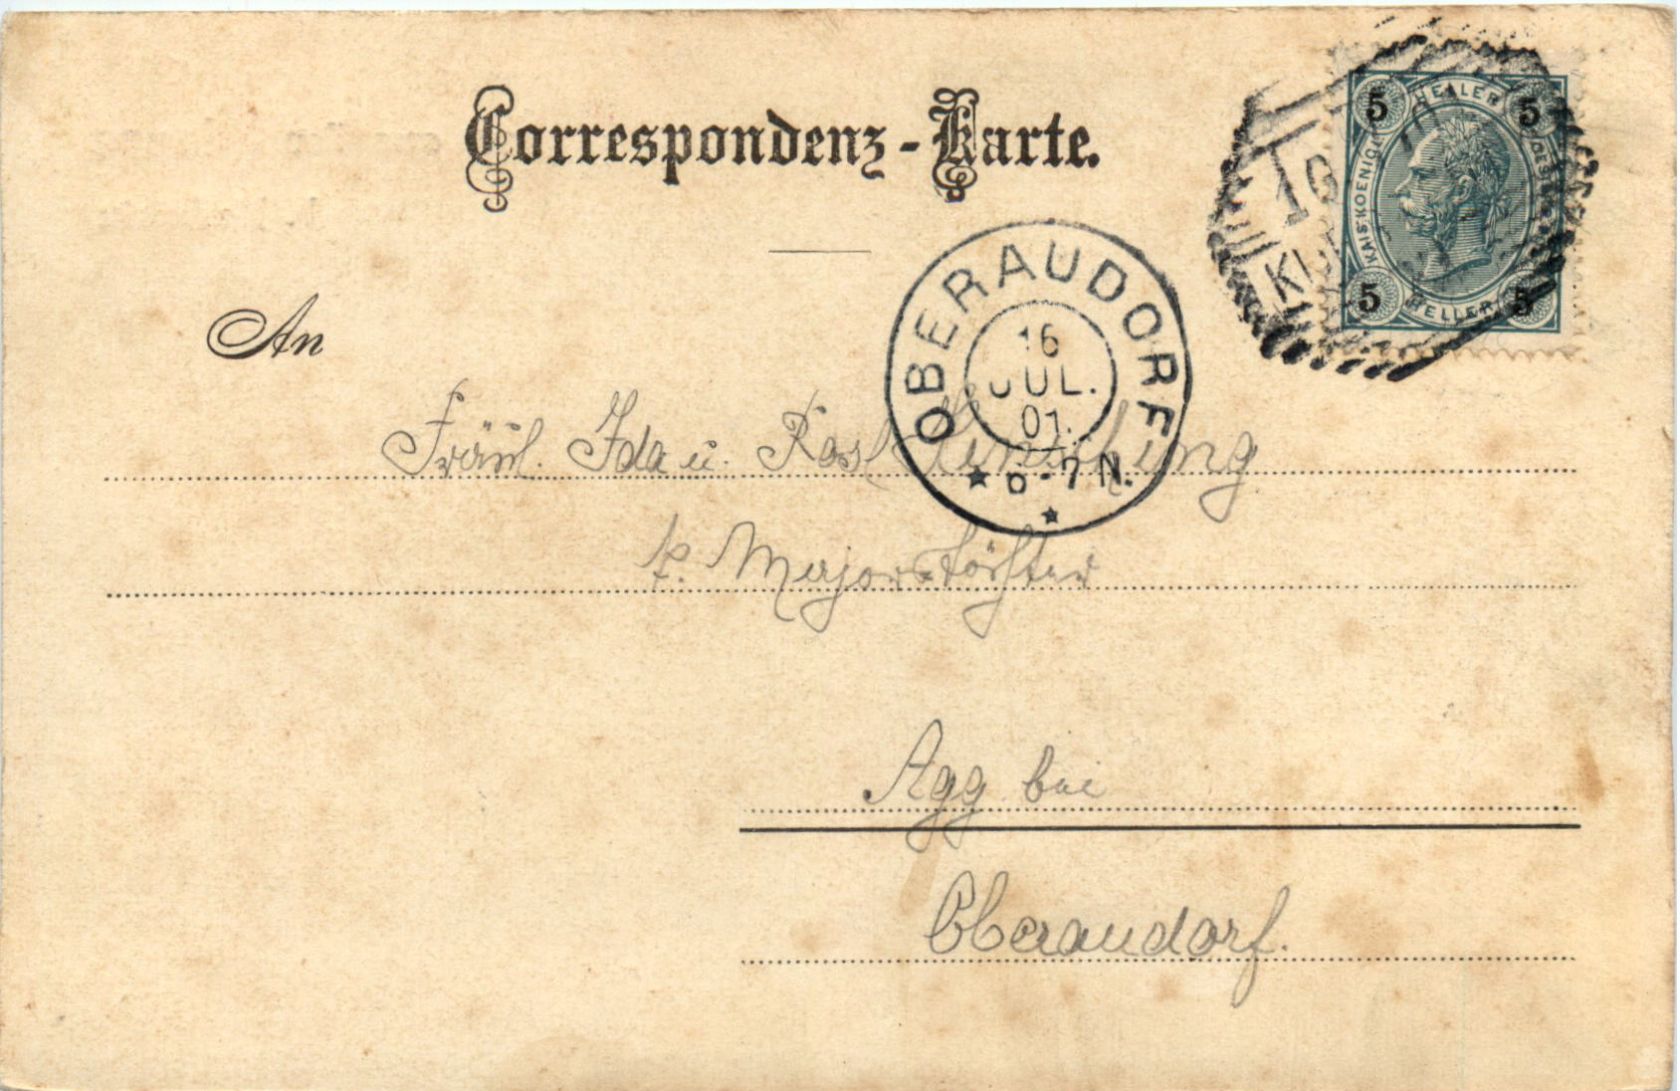 Correspondenz-Karte.
5 HELLER 5
KAIS·KOENIGL
5 HELLER 5
KU
An
OBERAUDORF
16
JUL.
01.
6-7 N.
Fräul. Ida u.
p. Major
Agg bei
Oberaudorf.